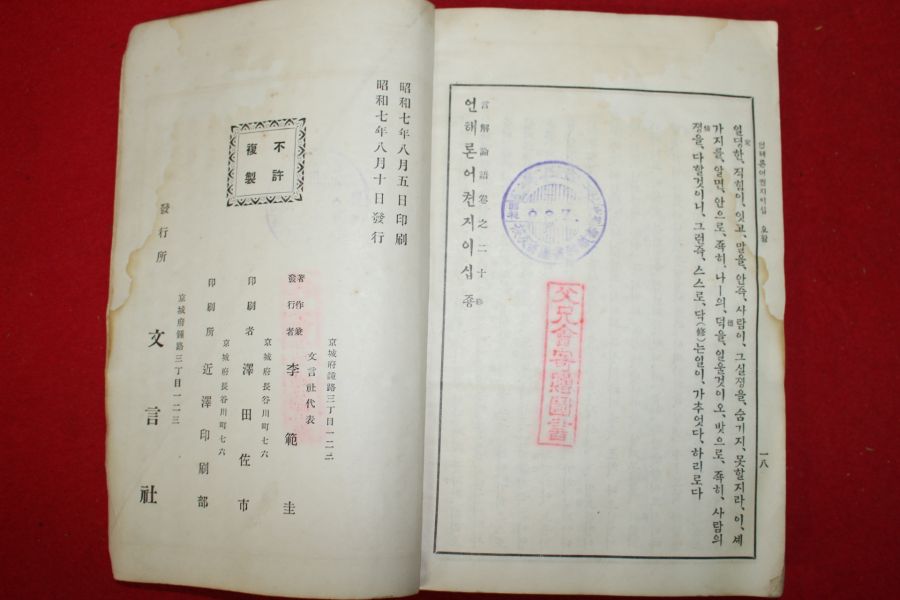 언해론어권지이십 요왈
一八
일뎡한, 직힘이, 잇고, 말을, 안즉, 사람이, 그실졍을, 숨기지, 못할지라, 이, 세
가지를, 알면, 안으로, 족히, 나—의, 덕을, 일울것이오, 밧으로, 족히, 사람의
졍을, 다할것이니, 그런즉, 스스로, 닥(修)는일이, 가추엇다, 하리로다
言解論語卷之二十終
언해론어권지이십 죵
父兄會寄贈圖書
昭和七年八月五日印刷
昭和七年八月十日發行
不許
複製
京城府鐘路三丁目一二三
文言社代表
著作兼
發行者 李範圭
京城府長谷川町七六
印刷者 澤田佐市
京城府長谷川町七六
印刷所 近澤印刷部
京城府鐘路三丁目一二三
發行所 文言社